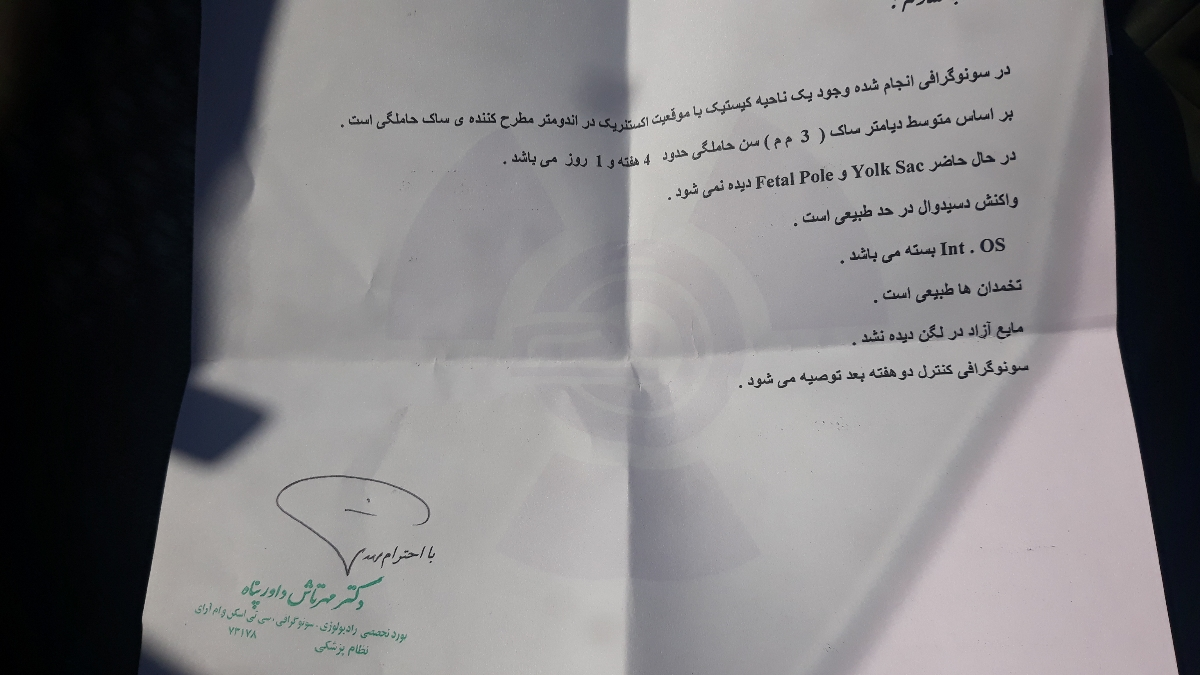 در سونوگرافی انجام شده وجود یک ناحیه کیستیک با موقعیت اکستنریک در اندومتر مطرح کننده ی ساک حاملگی است .
بر اساس متوسط دیامتر ساک ( 3 م م ) سن حاملگی حدود 4 هفته و 1 روز می باشد .
در حال حاضر Yolk Sac و Fetal Pole دیده نمی شود .
واکنش دسیدوال در حد طبیعی است .
Int . OS بسته می باشد .
تخمدان ها طبیعی است .
مایع آزاد در لگن دیده نشد .
سونوگرافی کنترل دو هفته بعد توصیه می شود .
با احترام
دکتر مهرتاش داورپناه
بورد تخصصی رادیولوژی . سونوگرافی . سی تی اسکن و ام آر آی
نظام پزشکی ۷۳۱۷۸